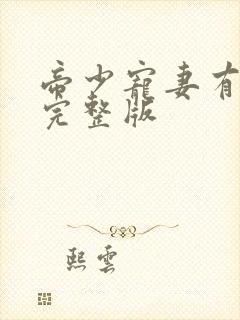 帝少寵妻有
完整版
熙雲